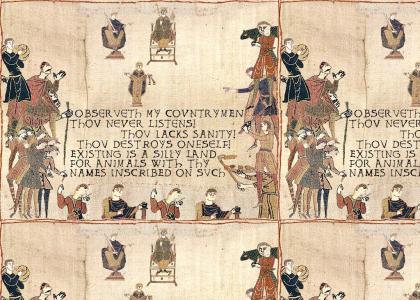 OBSERVETH MY COVNTRYMEN
THOV NEVER LISTENS!
THOV LACKS SANITY!
THOV DESTROYS ONESELF!
EXISTING IS A SILLY LAND
FOR ANIMALS WITH THY
NAMES INSCRIBED ON SVCH
OBSERVETH
THOV NEVER
THOV
THOV DEST
EXISTING IS
FOR ANIMAL
NAMES INSC